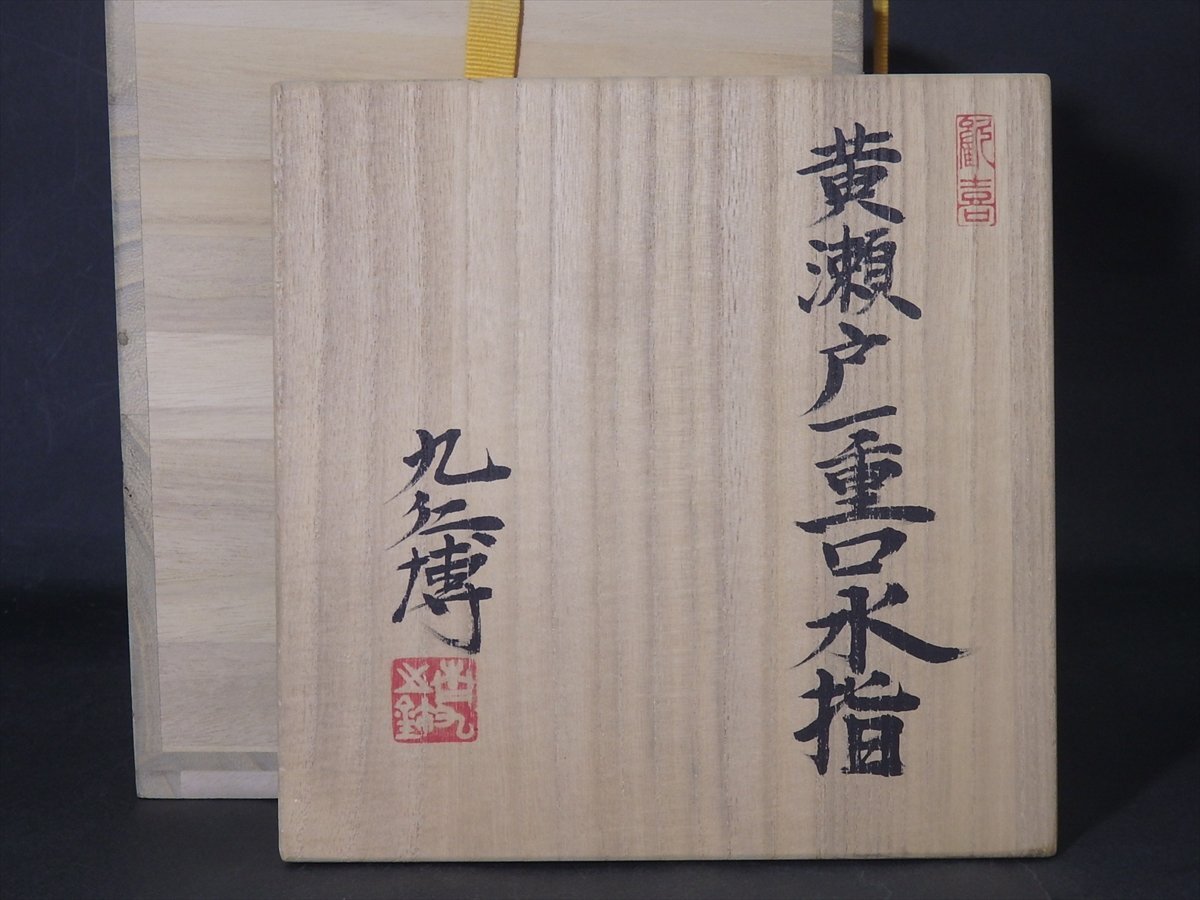 黄瀬戸一重口水指
九仁博